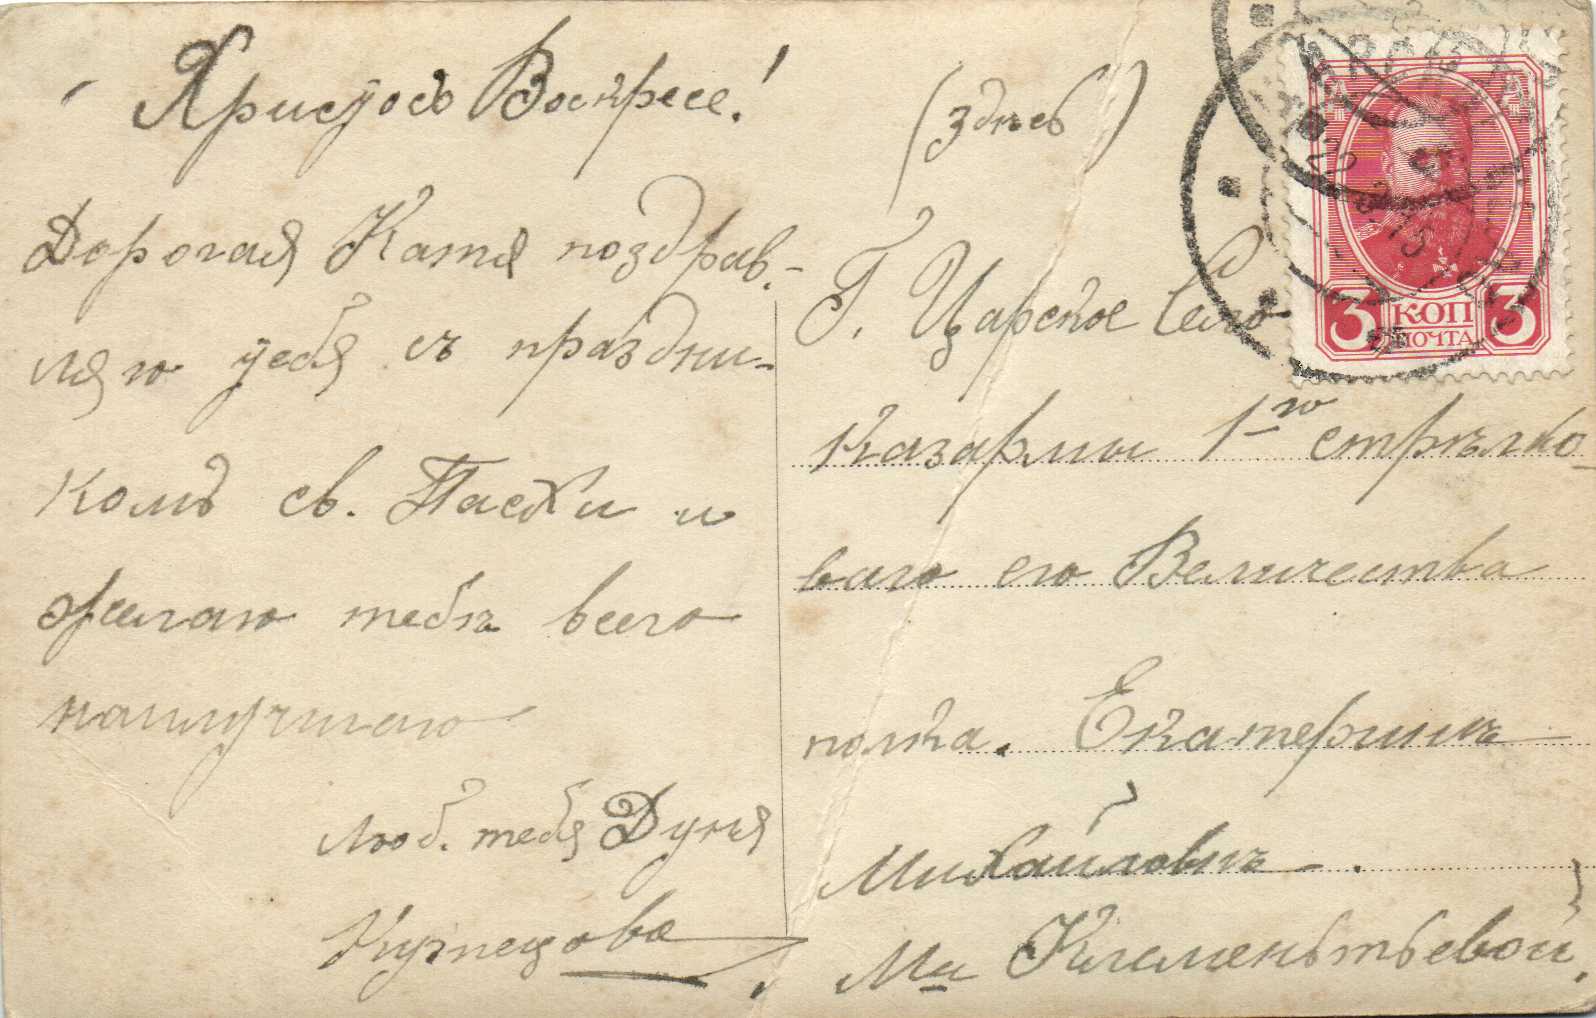 Христосъ Воскресе!
Дорогая Катя поздрав-
ляю тебя съ праздни-
комъ св. Пасхи и
желаю тебѣ всего
наилучшаго
люб. тебя Дуня
Кузнецова
(здѣсь)
Г. Царское Село
Казармы 1го стрѣлко-
ваго его Величества
полка. Екатеринѣ
Михайловнѣ.
М-ш Клеменьтьевой.
3 КОП 3
ПОЧТА